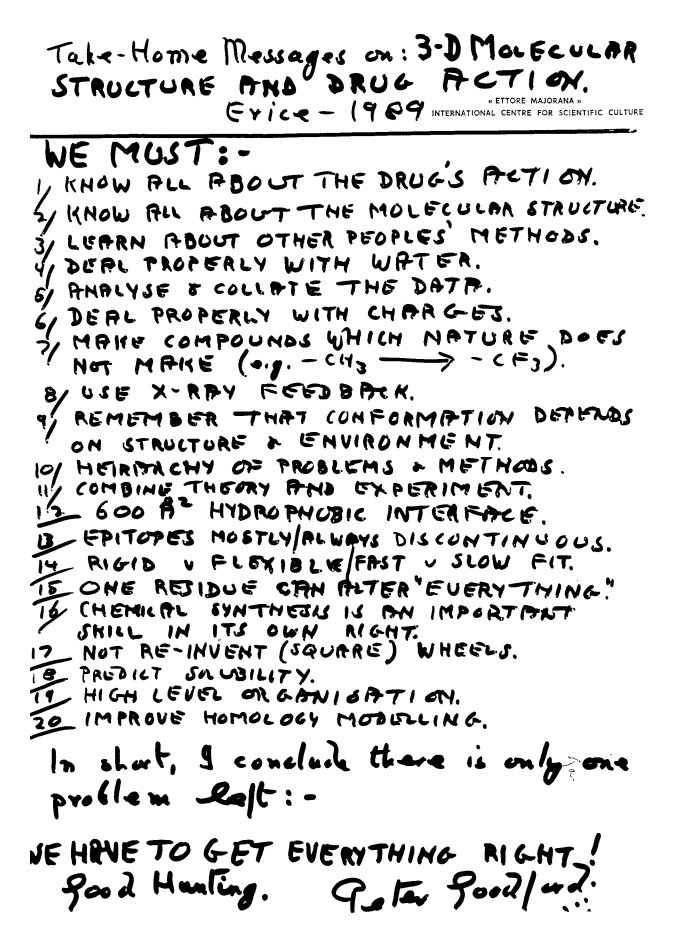 Take-Home Messages on: 3-D MOLECULAR
STRUCTURE AND DRUG ACTION.
Erice - 1989
« ETTORE MAJORANA »
INTERNATIONAL CENTRE FOR SCIENTIFIC CULTURE
WE MUST:-
1/ KNOW ALL ABOUT THE DRUG'S ACTION.
2/ KNOW ALL ABOUT THE MOLECULAR STRUCTURE.
3/ LEARN ABOUT OTHER PEOPLES' METHODS.
4/ DEAL PROPERLY WITH WATER.
5/ ANALYSE & COLLATE THE DATA.
6/ DEAL PROPERLY WITH CHARGES.
7/ MAKE COMPOUNDS WHICH NATURE DOES
NOT MAKE (e.g. -CH₃ ⟶ -CF₃).
8/ USE X-RAY FEEDBACK.
9/ REMEMBER THAT CONFORMATION DEPENDS
ON STRUCTURE & ENVIRONMENT.
10/ HEIRARCHY OF PROBLEMS & METHODS.
11/ COMBINE THEORY AND EXPERIMENT.
12 600 Å² HYDROPHOBIC INTERFACE.
13 EPITOPES MOSTLY/ALWAYS DISCONTINUOUS.
14 RIGID v FLEXIBLE/FAST v SLOW FIT.
15 ONE RESIDUE CAN ALTER "EVERYTHING."
16 CHEMICAL SYNTHESIS IS AN IMPORTANT
SKILL IN ITS OWN RIGHT.
17 NOT RE-INVENT (SQUARE) WHEELS.
18 PREDICT SOLUBILITY.
19 HIGH LEVEL ORGANISATION.
20 IMPROVE HOMOLOGY MODELLING.
In short, I conclude there is only one
problem left:-
WE HAVE TO GET EVERYTHING RIGHT!
Good Hunting. Peter Goodford.